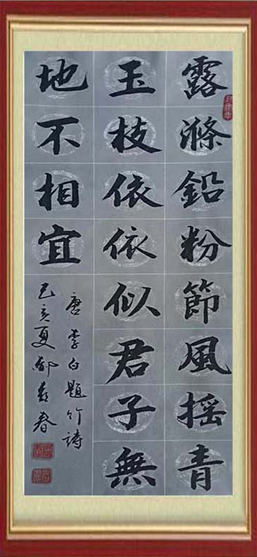 露滌鉛粉節風搖青
玉枝依依似君子無
地不相宜
唐李白題竹詩
己亥夏郁春